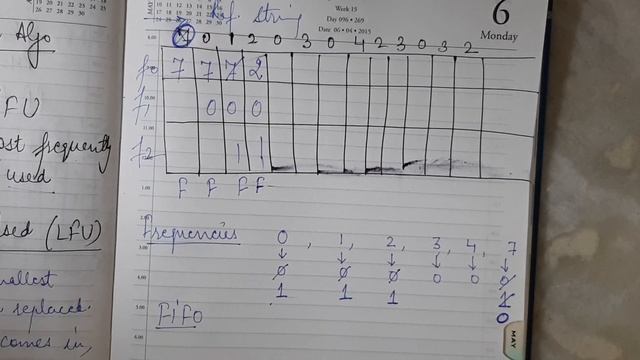 Ref. String
Week 15
Day 096 • 269
Date 06 • 04 • 2015
6
Monday
Algo
7 0 1 2 0 3 0 4 2 3 0 3 2
f0 7 7 7 2
f1 0 0 0
f2 1 1
F F F F
FU
frequently
used
Frequencies 0, 1, 2, 3, 4, 7
0 0 0 0 0 0
1 1 1 1
0
used (LFU)
smallest
replaced.
comes in,
FIFO
MAY